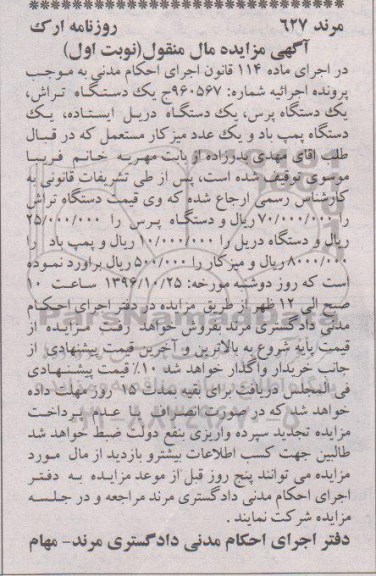 مرند ۶۲۷ روزنامه ارک
آگهی مزایده مال منقول(نوبت اول)
در اجرای ماده ۱۱۴ قانون اجرای احکام مدنی به موجب
پرونده اجرائیه شماره: ۹۶۰۵۶۷ج یک دستگاه تراش،
یک دستگاه پرس، یک دستگاه دریل ایستاده، یک
دستگاه پمپ باد و یک عدد میز کار مستعمل که در قبال
طلب اقای مهدی بدرزاده از بابت مهریه خانم فریبا
موسوی توقیف شده است، پس از طی تشریفات قانونی به
کارشناس رسمی ارجاع شده که وی قیمت دستگاه تراش
را ۷۰/۰۰۰/۰۰۰ ریال و دستگاه پرس را ۲۵/۰۰۰/۰۰۰
ریال و دستگاه دریل را ۱۰/۰۰۰/۰۰۰ ریال و پمپ باد را
۸۰۰۰/۰۰۰ ریال و میز کار را ۵۰۰/۰۰۰ ریال براورد نموده
است که روز دوشنبه مورخه: ۱۳۹۶/۱۰/۲۵ ساعت ۱۰
صبح الی ۱۲ ظهر از طریق مزایده در دفتر اجرای احکام
مدنی دادگستری مرند بفروش خواهد رفت مزایده از
قیمت پایه شروع به بالاترین و آخرین قیمت پیشنهادی از
جانب خریدار واگذار خواهد شد ۱۰٪ قیمت پیشنهادی
فی المجلس دریافت برای بقیه بمدت ۱۵ روز مهلت داده
خواهد شد که در صورت انصراف یا عدم پرداخت
مزایده تجدید سپرده واریزی بنفع دولت ضبط خواهد شد
طالبین جهت کسب اطلاعات بیشترو بازدید از مال مورد
مزایده می توانند پنج روز قبل از موعد مزایده به دفتر
اجرای احکام مدنی دادگستری مرند مراجعه و در جلسه
مزایده شرکت نمایند .
دفتر اجرای احکام مدنی دادگستری مرند- مهام
ParsNamadData